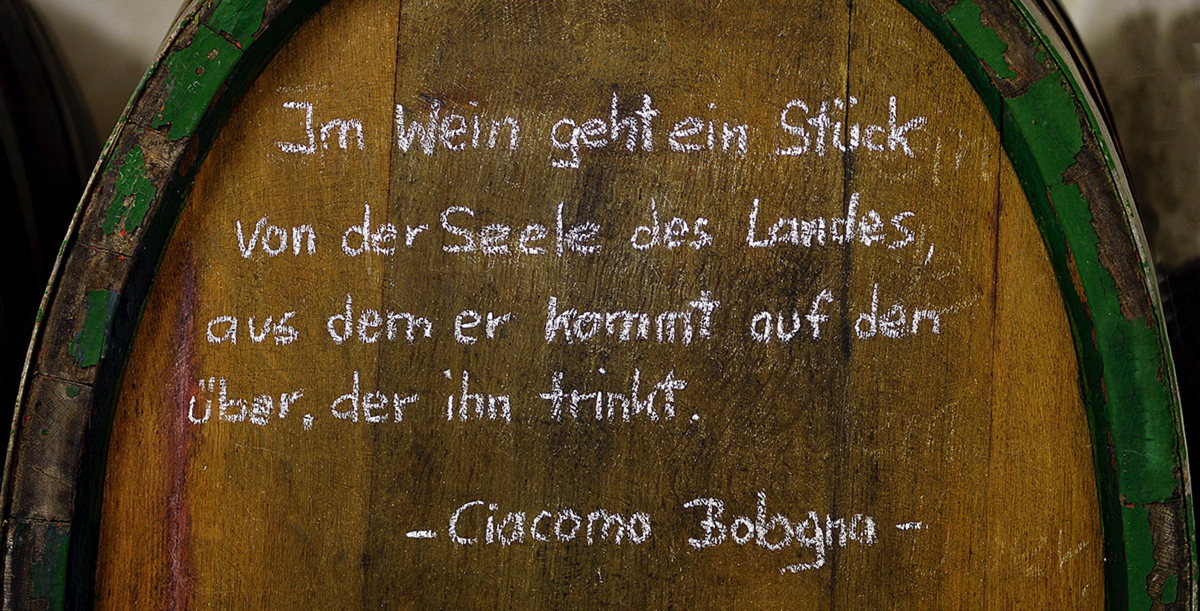 Im Wein geht ein Stück
von der Seele des Landes,
aus dem er kommt auf den
über, der ihn trinkt.
- Giacomo Bologna -